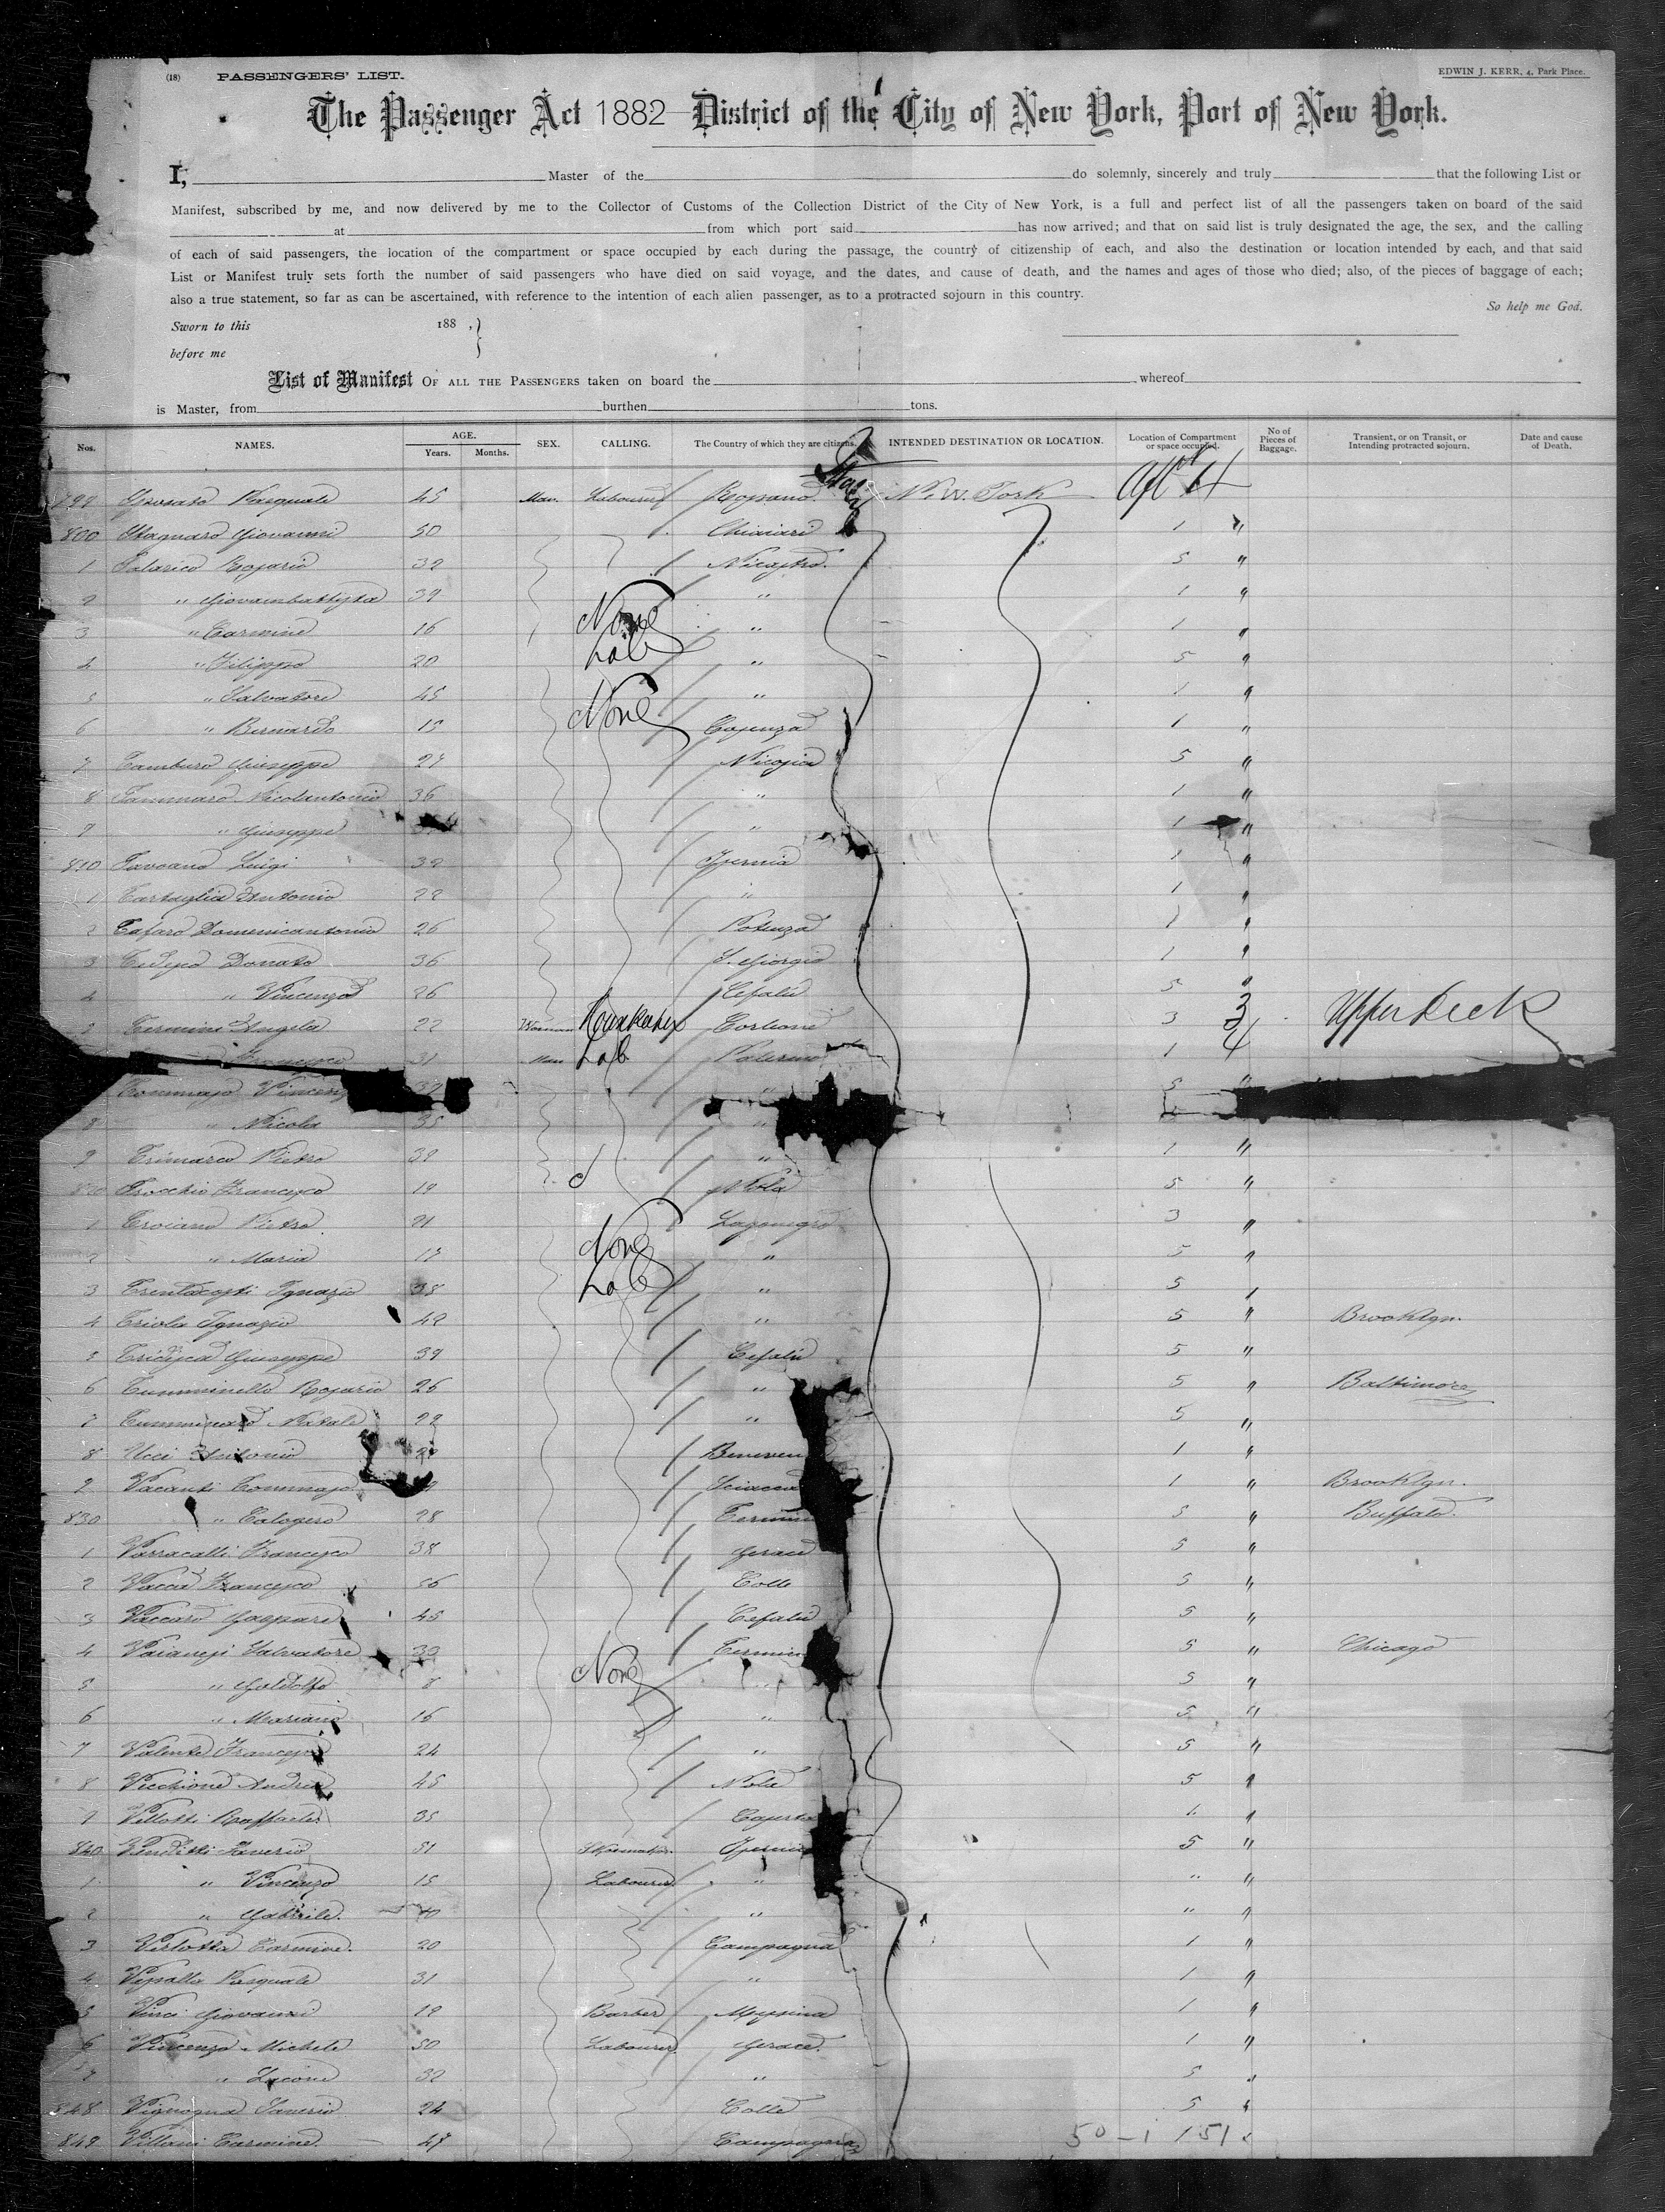 (18) PASSENGERS' LIST.
EDWIN J. KERR, 4, Park Place.
The Passenger Act 1882 District of the City of New York, Port of New York.
I, Master of the do solemnly, sincerely and truly that the following List or
Manifest, subscribed by me, and now delivered by me to the Collector of Customs of the Collection District of the City of New York, is a full and perfect list of all the passengers taken on board of the said
at from which port said has now arrived; and that on said list is truly designated the age, the sex, and the calling
of each of said passengers, the location of the compartment or space occupied by each during the passage, the country of citizenship of each, and also the destination or location intended by each, and that said
List or Manifest truly sets forth the number of said passengers who have died on said voyage, and the dates, and cause of death, and the names and ages of those who died; also, of the pieces of baggage of each;
also a true statement, so far as can be ascertained, with reference to the intention of each alien passenger, as to a protracted sojourn in this country.
So help me God.
Sworn to this 188 , }
before me
List of Manifest OF ALL THE PASSENGERS taken on board the whereof
is Master, from burthen tons.
Nos. NAMES. AGE. Years. Months. SEX. CALLING. The Country of which they are citizens. INTENDED DESTINATION OR LOCATION. Location of Compartment or space occupied. No of Pieces of Baggage. Transient, or on Transit, or Intending protracted sojourn. Date and cause of Death.
799 Pasquale 45 Man Labourer New York Aft
800 Stagnaro Giovanni 50 Chiavari 1 "
1 Talarico Rosario 39 Nicastro. 5 "
2 " Giovambattista 39 " 1 "
3 " Carmine 16 None " 1 "
4 " Filippo 20 Lab " 5 "
5 " Salvatore 45 " 1 "
6 " Bernardo 15 None Cosenza 1 "
7 Tamburo Giuseppe 27 Nicosia 5 "
8 Tammaro Nicolantonio 36 " 1 "
9 " Giuseppe " 1 "
810 Luigi 39 Isernia 1 "
1 Tartaglia Antonio 22 " 1 "
2 Tafaro Domenicantonio 26 Potenza 1 "
3 Tedesco Donato 36 S. Giorgio 1 "
4 " Vincenzo 26 Cefalù 5 "
5 Termini Angela 22 Woman Corleone 3 3 Upper Deck
Francesco 31 Man Lab Palermo 1 4
Tommaso 39 " 5 "
8 " Nicola 35 "
9 Trimarco Pietro 39 " 1 "
820 Francesco 19 Nola 5 "
1 Troiano Pietro 21 Lagonegro 3 "
2 " Maria 17 None " 5 "
3 Trentacosti Ignazio 38 Lab " 5 "
4 Triolo Ignazio 49 " 5 " Brooklyn.
5 Giuseppe 39 Cefalù 5 "
6 Tumminello Rosario 26 " 5 " Baltimore
7 Natale 22 " 5 "
8 Ucci Antonio 1 "
9 Vacanti Tommaso 1 " Brooklyn.
830 " Calogero 28 5 " Buffalo.
1 Varracalli Francesco 38 Gerace 5 "
2 Vaccà Francesco 56 Colle 5 "
3 Vaccaro Gaspare 45 Cefalù 5 "
4 Salvatore 39 5 " Chicago
5 " Gandolfo 8 None " 5 "
6 " Mariano 16 " 5 "
7 Valente Francesco 24 " 5 "
8 Vecchione Andrea 45 Nola 5 "
9 Vellotti Raffaele 35 Caserta "
840 Venditti Saverio 51 Shoemaker. Isernia 5 "
1 " Vincenzo 15 Labourer " " "
2 " Gabriele. " " "
3 Carmine. 20 Campagna 1 "
4 Pasquale 31 " 1 "
5 Vinci Giovanni 19 Barber Messina 1 "
6 Vincenzo Michele 50 Labourer Gerace. 1 "
7 " 32 " 5 "
848 Vignogna Saverio 24 Colle 5 "
849 Villani Carmine. 47 Campagna
50 - 1 151